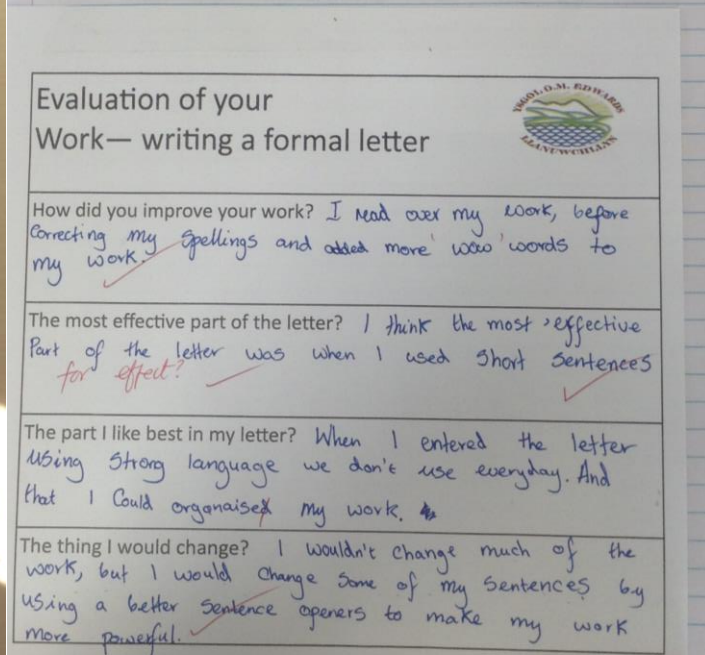 Evaluation of your
Work— writing a formal letter
YSGOL O.M. EDWARDS
LLANUWCHLLYN
How did you improve your work? I read over my work, before
Correcting my spellings and added more 'wow' words to
my work.
The most effective part of the letter? I think the most effective
Part of the letter was when I used short sentences
for effect?
The part I like best in my letter? When I entered the letter
using strong language we don't use everyday. And
that I Could organaised my work.
The thing I would change? I wouldn't change much of the
work, but I would change some of my sentences by
using a better sentence openers to make my work
more powerful.